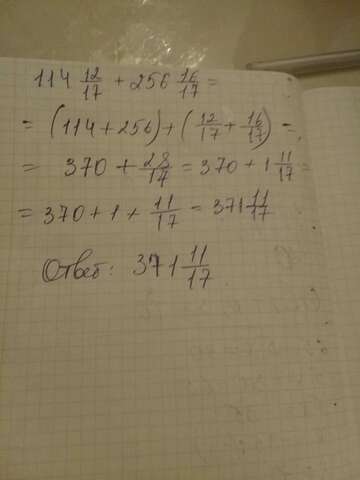 114 12/17 + 256 16/17 =
= (114 + 256) + (12/17 + 16/17) =
= 370 + 28/17 = 370 + 1 11/17 =
= 370 + 1 + 11/17 = 371 11/17
Ответ: 371 11/17